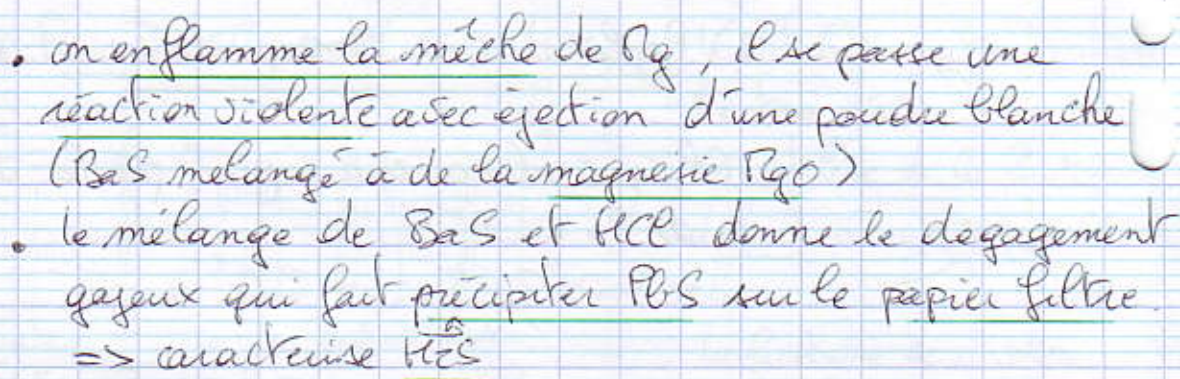 • on enflamme la mèche de Mg, il se passe une
réaction violente avec éjection d'une poudre blanche
(BaS melangé à de la magnesie MgO)
• le mélange de BaS et HCl donne le degagement
gazeux qui fait précipiter PbS sur le papier filtre.
=> caracterise H2S